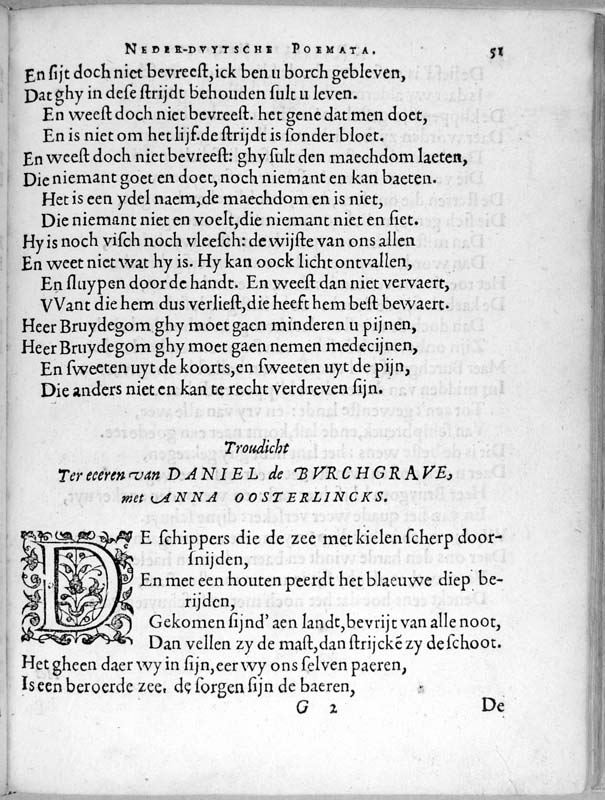 NEDER-DVYTSCHE POEMATA. 51
En sijt doch niet bevreest, ick ben u borch gebleven,
Dat ghy in dese strijdt behouden sult u leven.
En weest doch niet bevreest. het gene dat men doet,
En is niet om het lijf. de strijdt is sonder bloet.
En weest doch niet bevreest: ghy sult den maechdom laeten,
Die niemant goet en doet, noch niemant en kan baeten.
Het is een ydel naem, de maechdom en is niet,
Die niemant niet en voelt, die niemant niet en siet.
Hy is noch visch noch vleesch: de wijste van ons allen
En weet niet wat hy is. Hy kan oock licht ontvallen,
En sluypen door de handt. En weest dan niet vervaert,
VVant die hem dus verliest, die heeft hem best bewaert.
Heer Bruydegom ghy moet gaen minderen u pijnen,
Heer Bruydegom ghy moet gaen nemen medecijnen,
En sweeten uyt de koorts, en sweeten uyt de pijn,
Die anders niet en kan te recht verdreven sijn.
Troudicht
Ter eeren van DANIEL de BVRCHGRAVE,
met ANNA OOSTERLINCKS.
DE schippers die de zee met kielen scherp door-
snijden,
En met een houten peerdt het blaeuwe diep be-
rijden,
Gekomen sijnd' aen landt, bevrijt van alle noot,
Dan vellen zy de mast, dan strijckē zy de schoot.
Het gheen daer wy in sijn, eer wy ons selven paeren,
Is een beroerde zee, de sorgen sijn de baeren,
G 2 De